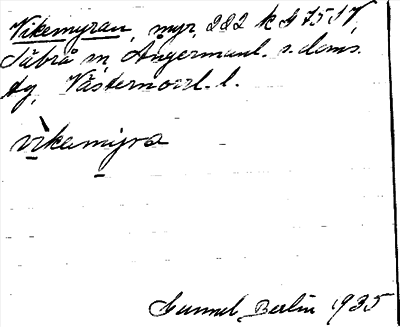 Vikemyran, myr, 282 k G 7517,
Säbrå sn Ångermanl. s. doms.
tg, Västernorrl. l.
vìkamýra
Gunnel Berlin 1935